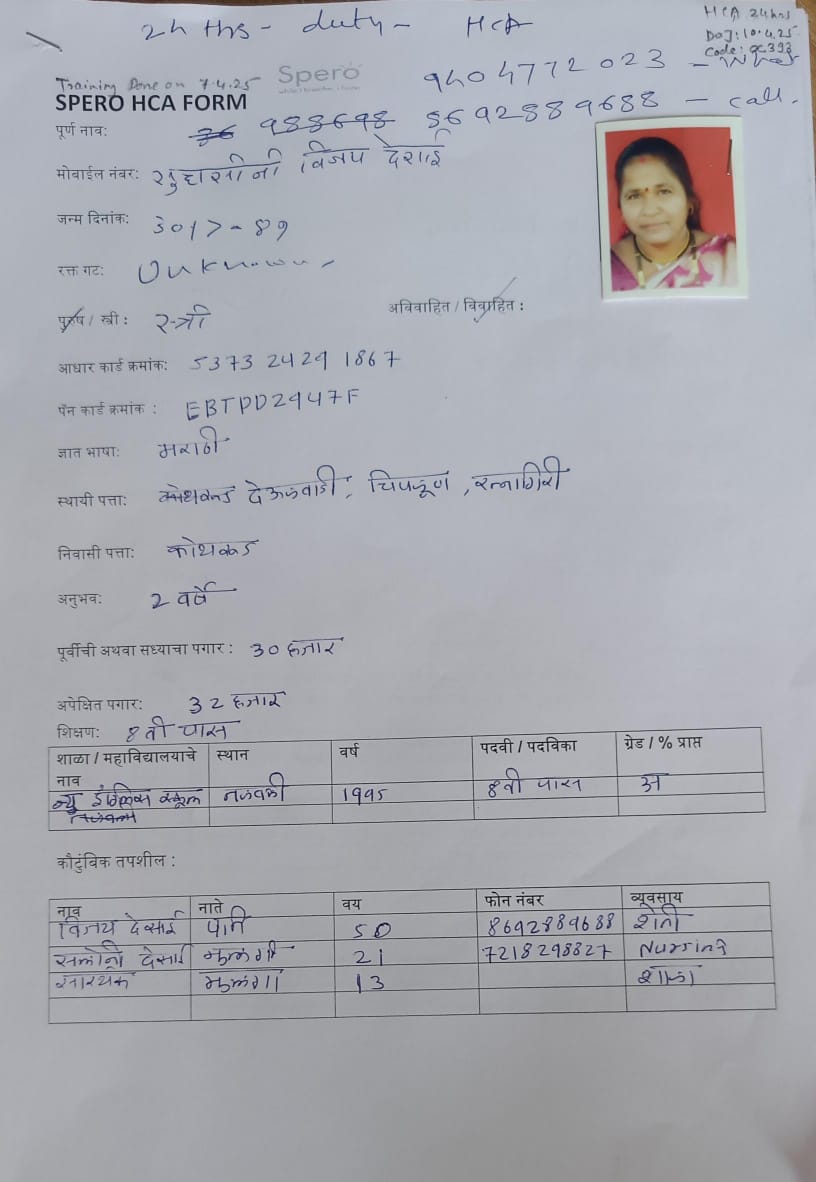 24 hrs - duty - HCA
HCA 24hrs
DOJ: 10.4.25
Code: gc393
Training Done on 7.4.25
Spero
9404772023 -
SPERO HCA FORM
पूर्ण नाव: 36 988698 8692889688 - call.
मोबाईल नंबर: सुहासीनी विजय देसाई
जन्म दिनांक: 30/7-89
रक्त गट: Unknown
पुरुष / स्त्री : स्त्री अविवाहित / विवाहित :
आधार कार्ड क्रमांक: 5373 2429 1867
पॅन कार्ड क्रमांक : EBTPD2947F
ज्ञात भाषा: मराठी
स्थायी पत्ता: देऊळवाडी, चिपळूण, रत्नागिरी
निवासी पत्ता: कोथरूड
अनुभव: 2 वर्षे
पूर्वीची अथवा सध्याचा पगार : 30 हजार
अपेक्षित पगार: 32 हजार
शिक्षण: 8वी पास
शाळा / महाविद्यालयाचे नाव स्थान वर्ष पदवी / पदविका ग्रेड / % प्राप्त
न्यु इंग्लिश स्कूल 1995 8वी पास अ
कौटुंबिक तपशील :
नाव नाते वय फोन नंबर व्यूवसाय
विजय देसाई पती 50 8692889688 शेती
सलोनी देसाई मुलगी 21 7218298827 Nursing
सारथक मुलगा 13 शाळा